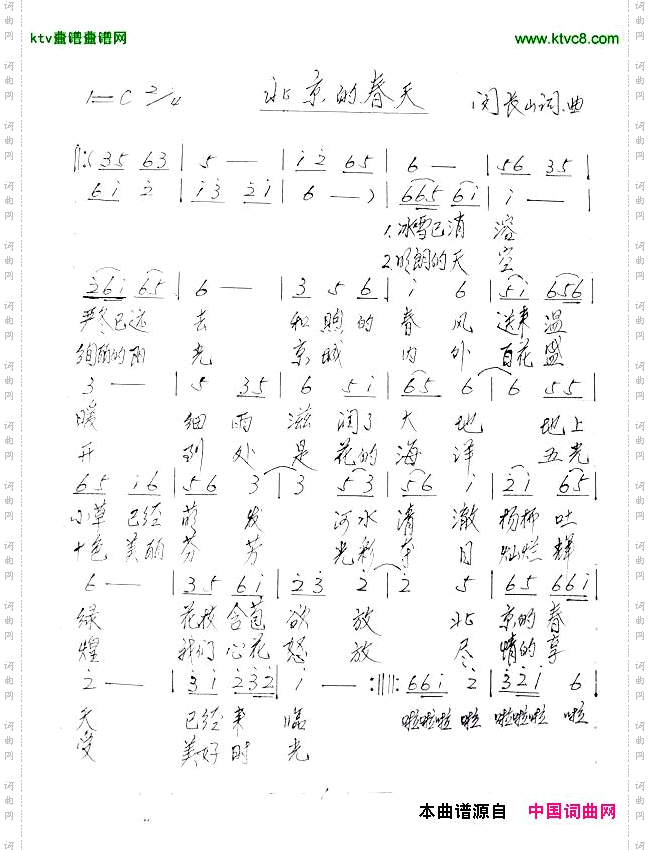 ktv歌谱歌谱网 www.ktvc8.com
1=C 2/4 北京的春天 闵长山词.曲
‖: 35 63 | 5 — | i̇ 2̇ 65 | 6 — | 56 35 |
6i̇ 2̇ | i̇3̇ 2̇i̇ | 6 — ) | 665 6i̇ | i̇ — |
1.冰雪已消 溶
2.明朗的天 空
2̇6i̇ 65 | 6 — | 3 56 | i̇ 6 | 5i̇ 656 |
严冬已远 去 和煦的春风送来温
绚丽的阳 光 京城 内外百花盛
3 — | 5 35 | 6 5i̇ | 65 6 | 6 55 |
暖 细雨滋润了大地 地上
开 到处是花的海洋 五光
65 i̇6 | 56 3 | 3 53 | 56 i̇ | 2̇i̇ 65 |
小草已经萌发 河水清澈杨柳吐
十色美丽芬芳 光彩夺目灿烂辉
6 — | 35 6i̇ | 2̇3̇ 2̇ | 2̇ 5 | 65 66i̇ |
绿 花枝含苞欲放 北京的春
煌 我们心花怒放 尽情的享
2̇ — | 3̇i̇ 2̇3̇2̇ | i̇ — :‖: 66i̇ 2̇ | 3̇2̇i̇ 6 |
天 已经来临 啦啦啦啦 啦啦啦啦
受 美好时光
本曲谱源自 中国词曲网
词曲网